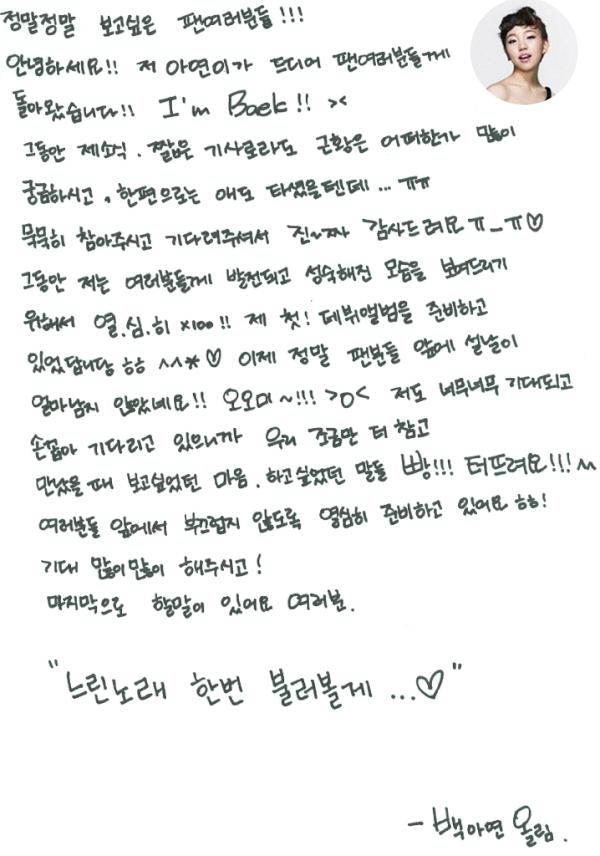 정말정말 보고싶은 팬여러분들!!!
안녕하세요!! 저 아연이가 드디어 팬여러분들께
돌아왔습니다!! I'm Baek!! ><
그동안 제소식. 짧은 기사로라도 근황은 어떠한가 많이
궁금하시고, 한편으로는 애도 타셨을텐데... ㅠㅠ
묵묵히 참아주시고 기다려주셔서 진~짜 감사드려요 ㅠ_ㅠ♡
그동안 저는 여러분들께 발전되고 성숙해진 모습을 보여드리기
위해서 열.심.히 x100!! 제 첫! 데뷔앨범을 준비하고
있었답니당 ㅎㅎ ^^*♡ 이제 정말 팬분들 앞에 설날이
얼마남지 않았네요!! 오오미~!!! >O< 저도 너무너무 기대되고
손꼽아 기다리고 있으니까 우리 조금만 더 참고
만났을 때 보고싶었던 마음. 하고싶었던 말들 빵!!! 터뜨려요!!! ^^
여러분들 앞에서 부끄럽지 않도록 열심히 준비하고 있어요 ㅎㅎ!
기대 많이많이 해주시고!
마지막으로 할말이 있어요 여러분.
"느린노래 한번 불러볼게 ...♡"
- 백아연 올림.